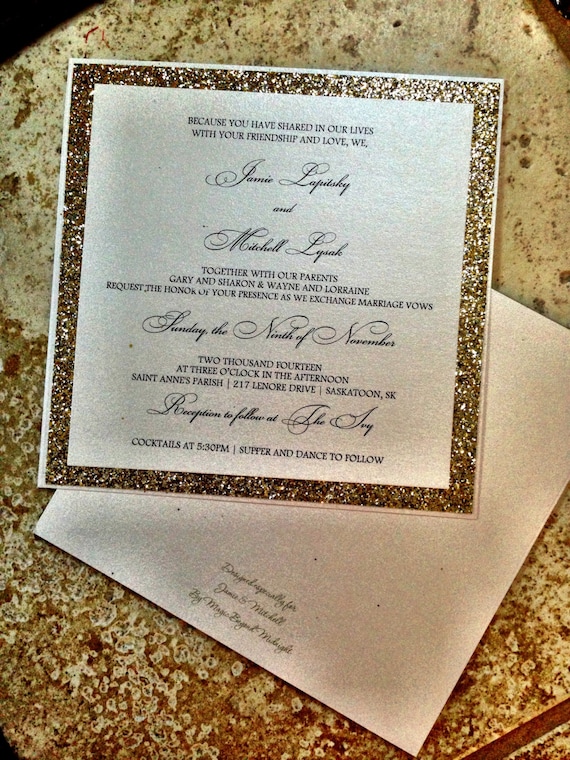 BECAUSE YOU HAVE SHARED IN OUR LIVES
WITH YOUR FRIENDSHIP AND LOVE, WE,
Jamie Lapitsky
and
Mitchell Lysak
TOGETHER WITH OUR PARENTS
GARY AND SHARON & WAYNE AND LORRAINE
REQUEST THE HONOR OF YOUR PRESENCE AS WE EXCHANGE MARRIAGE VOWS
Sunday, the Ninth of November
TWO THOUSAND FOURTEEN
AT THREE O'CLOCK IN THE AFTERNOON
SAINT ANNE'S PARISH | 217 LENORE DRIVE | SASKATOON, SK
Reception to follow at The Ivy
COCKTAILS AT 5:30PM | SUPPER AND DANCE TO FOLLOW
Designed especially for
Jamie & Mitchell
By Magic Beyond Midnight